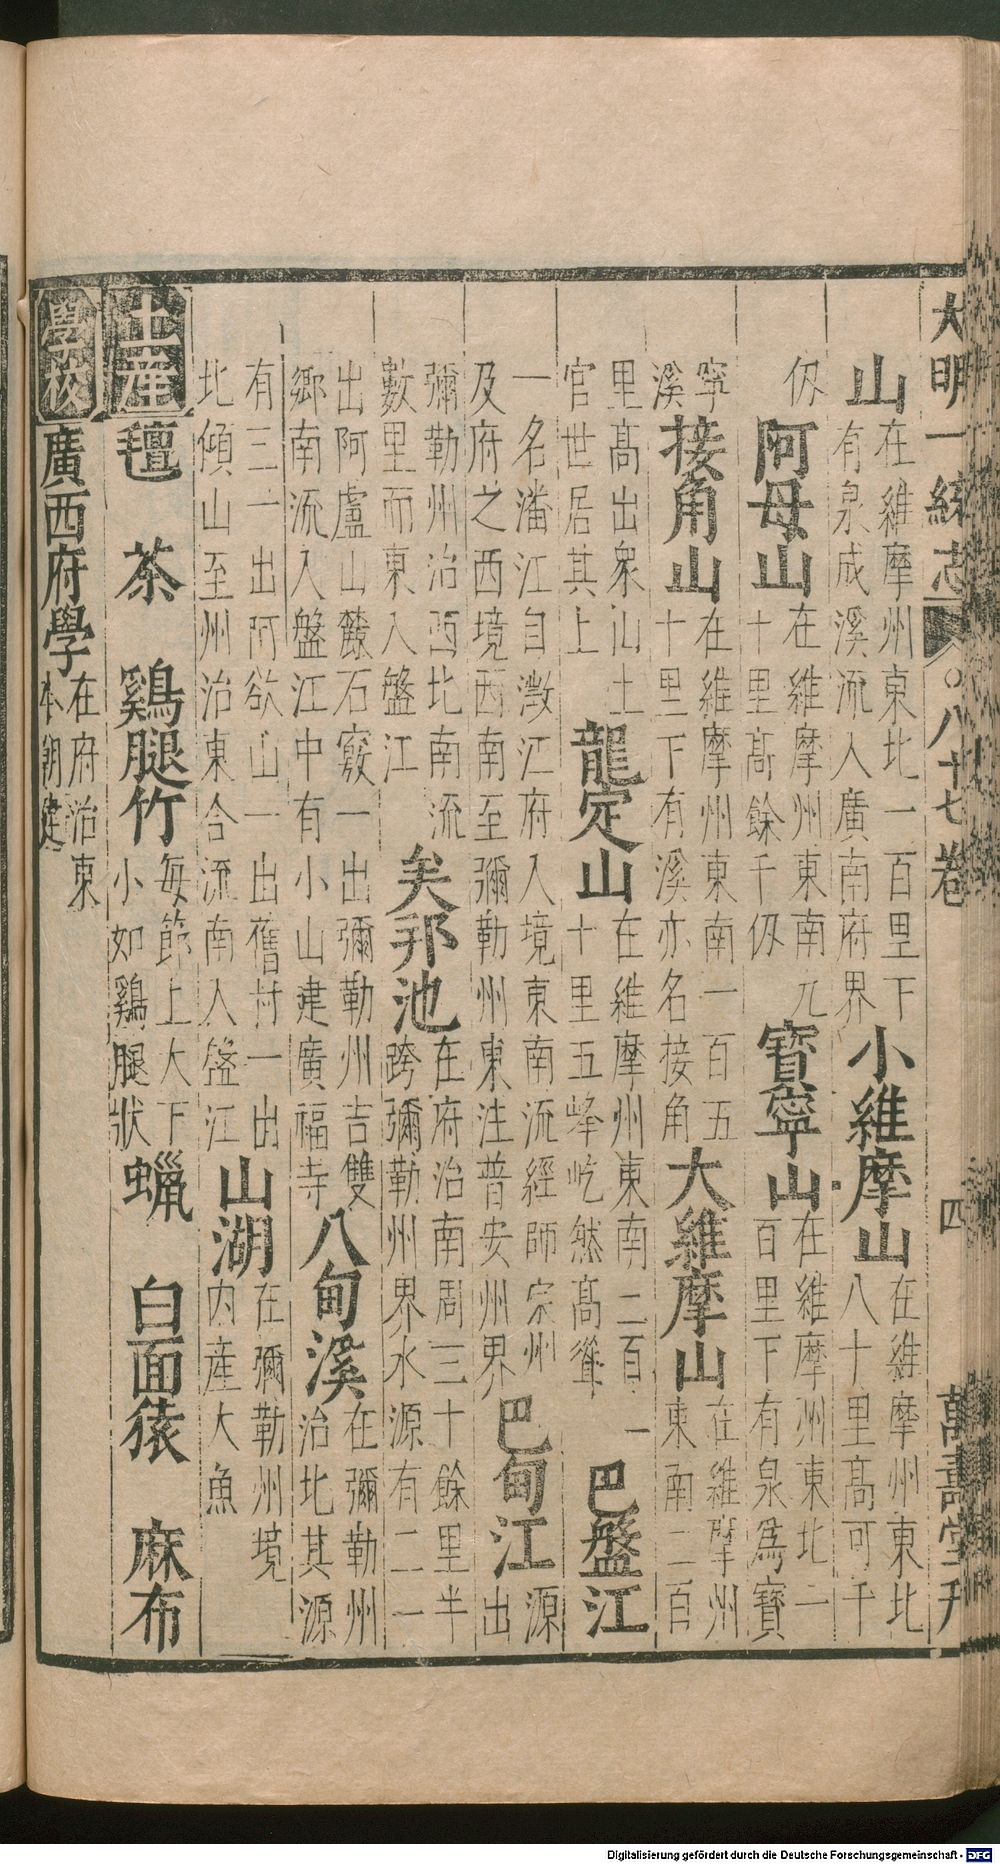 大明一統志 八十七卷 四 萬壽堂刋
山在維摩州東北一百里下有泉成溪流入廣南府界小維摩山在維摩州東北八十里高可千
仭阿母山在維摩州東南九十里高餘千仭寶寧山在維摩州東北二百里下有泉爲寶
寧溪接角山在維摩州東南一百五十里下有溪亦名接角大維摩山在維摩州東南二百
里高出衆山土官世居其上龍定山在維摩州東南二百一十里五峰屹然高聳巴盤江
一名潘江自澂江府入境東南流經師宗州及府之西境西南至彌勒州東注普安州界巴甸江源出
彌勒州治西北南流數里而東入盤江矣邦池在府治南周三十餘里半跨彌勒州界水源有二一
出阿盧山麓石竅一出彌勒州吉雙鄉南流入盤江中有小山建廣福寺八甸溪在彌勒州治北其源
有三一出阿欲山一出舊村一出北傾山至州治東合流南入盤江山湖在彌勒州境内産大魚
土産 氊 茶 鷄腿竹每節上大下小如鷄腿狀 蠟 白面猿 麻布
學校 廣西府學在府治東本朝建
Digitalisierung gefördert durch die Deutsche Forschungsgemeinschaft - DFG